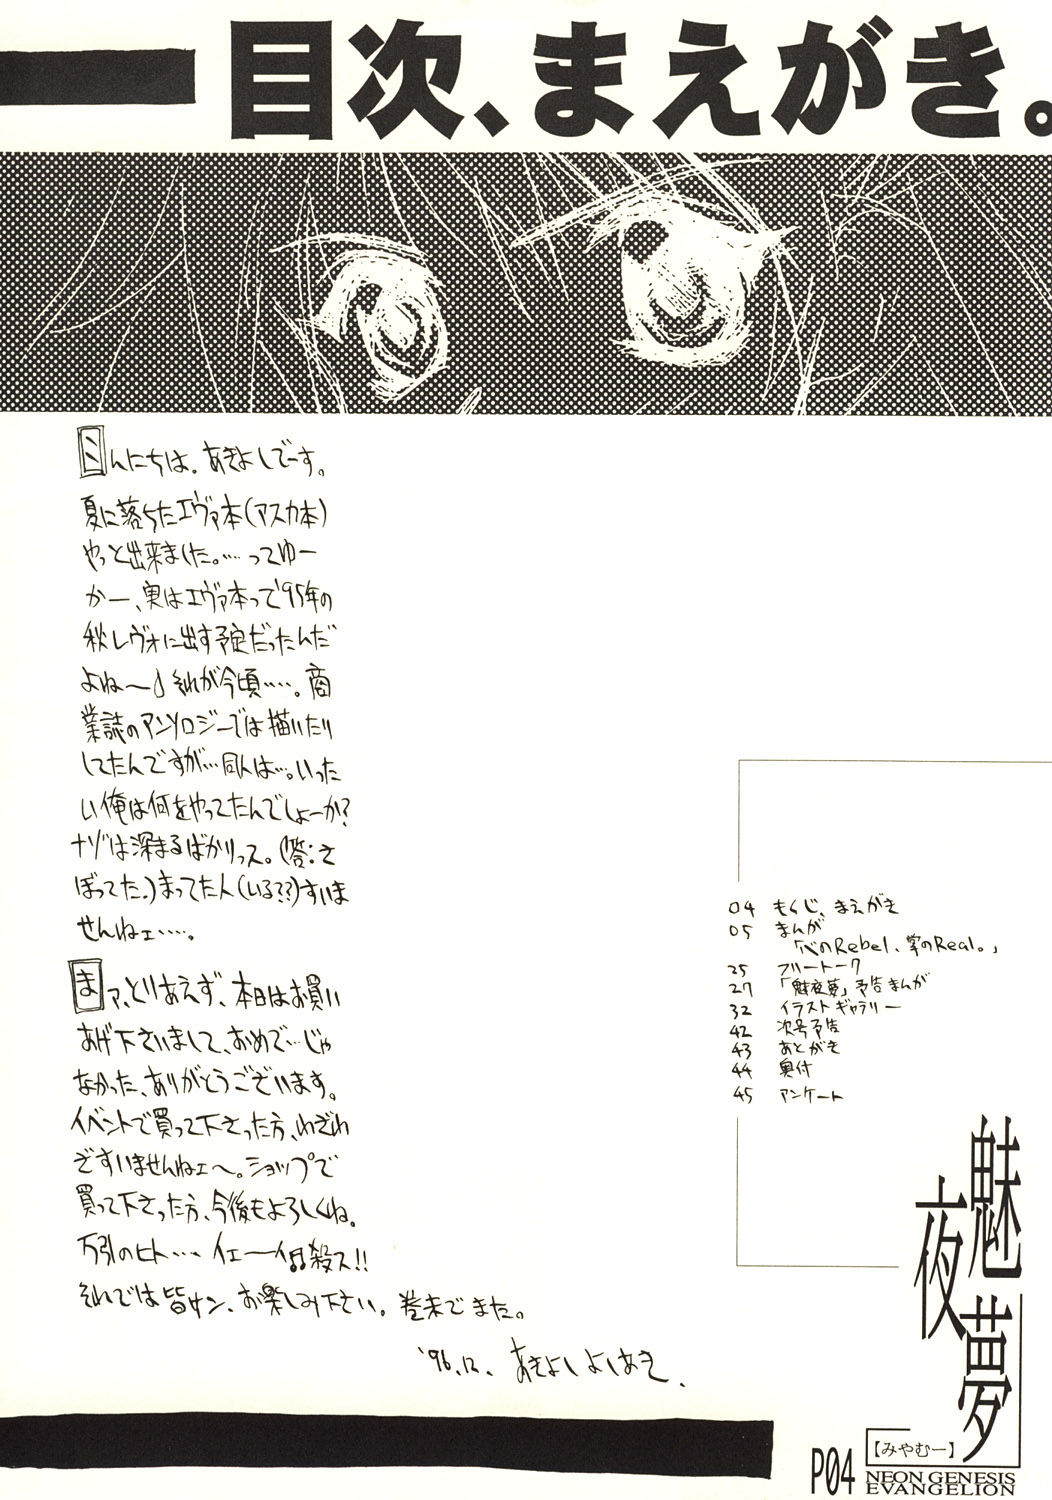 目次、まえがき。
こんにちは。あきよしでーす。
夏に落ちたエヴァ本(アスカ本)
やっと出来ました。…ってゆー
かー、実はエヴァ本って'95年の
秋レヴォに出す予定だったんだ
よね〜♪それが今頃‥‥。商
業誌のアンソロジーでは描いたり
してたんですが…同人は…。いった
い俺は何をやってたんでしょーか?
ナゾは深まるばかりっス。(答:さ
ぼってた。)まってた人(いる??)すいま
せんねェ‥‥。
まァ、とりあえず、本日はお買い
あげ下さいまして、おめで…じゃ
なかった、ありがとうございます。
イベントで買って下さった方、わざわ
ざすいませんねェ〜。ショップで
買って下さった方、今後もよろしくね。
万引のヒト‥‥イェーイ♫殺ス!!
それでは皆サン、お楽しみ下さい。巻末でまた。
'96.12. あきよしよしあき.
04 もくじ、まえがき
05 まんが
「心のRebel、掌のReal。」
25 フリートーク
27 「魅夜夢」予告まんが
32 イラストギャラリー
42 次号予告
43 あとがき
44 奥付
45 アンケート
魅夜夢
【みやむー】
P04 NEON GENESIS
EVANGELION